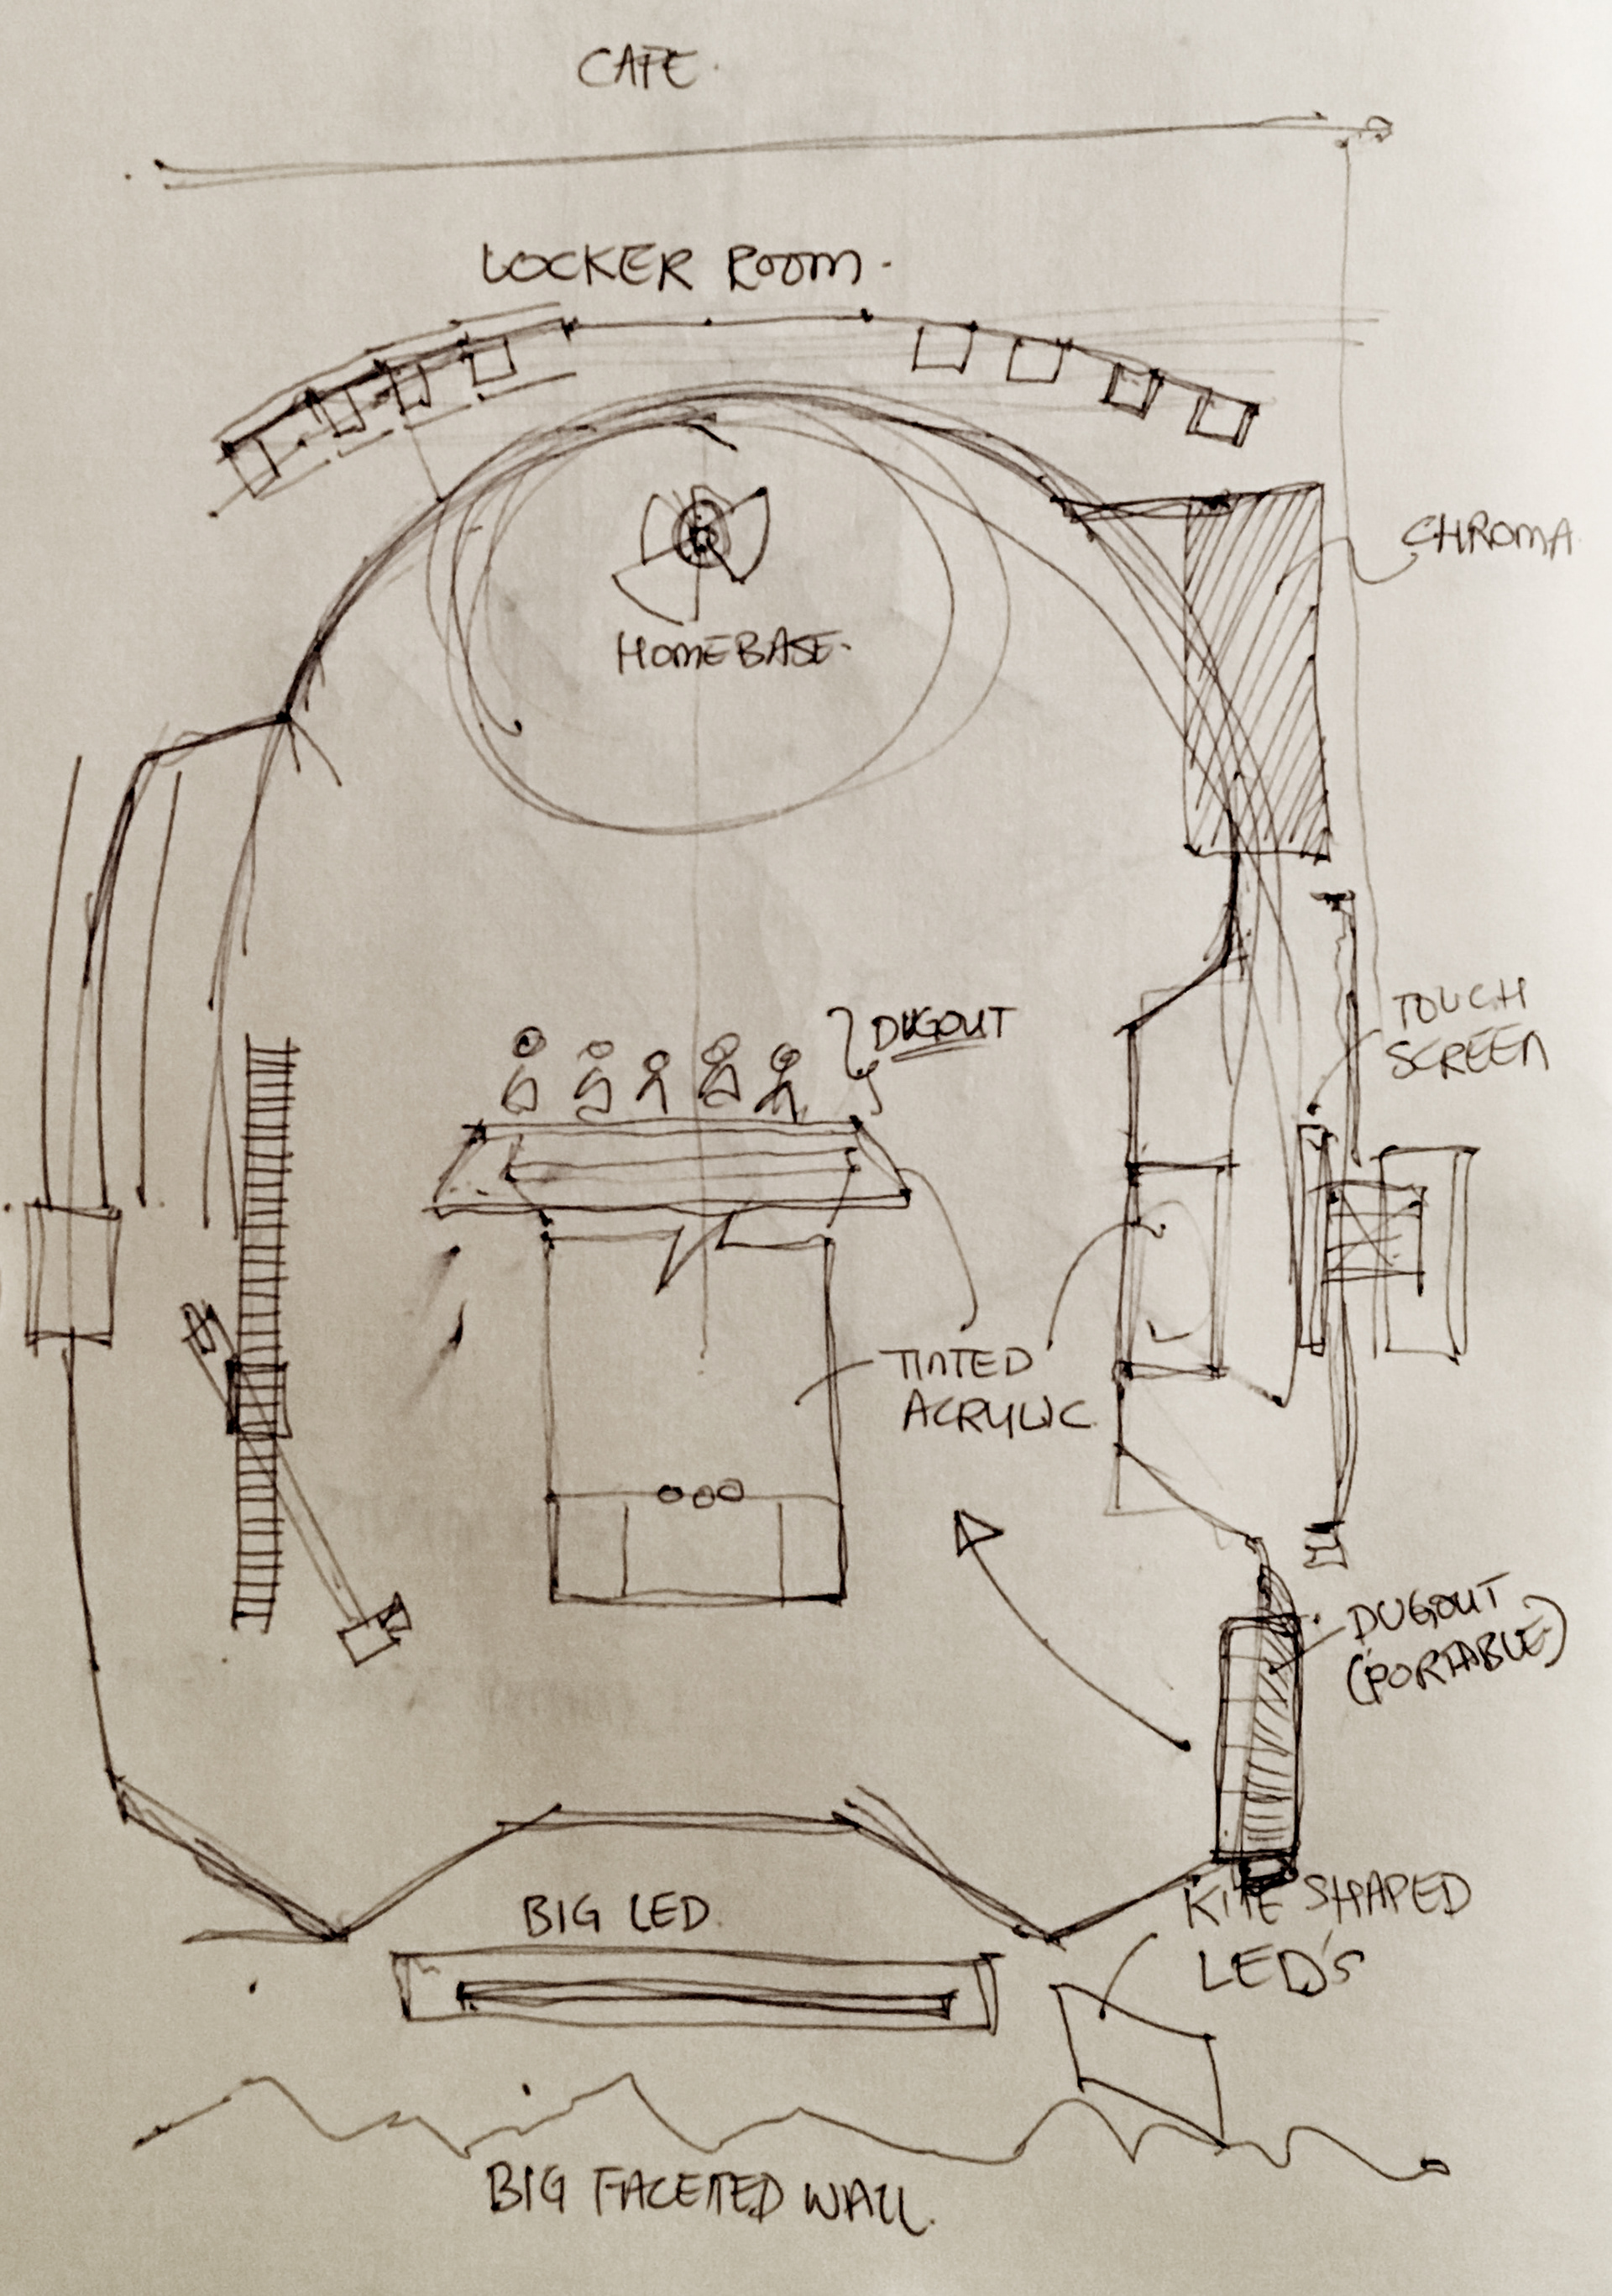 CAFE.
LOCKER ROOM.
CHROMA
HOMEBASE.
DUGOUT
TOUCH
SCREEN
TINTED
ACRYLIC
DUGOUT
(PORTABLE)
BIG LED.
KITE SHAPED
LED'S
BIG FACETED WALL.